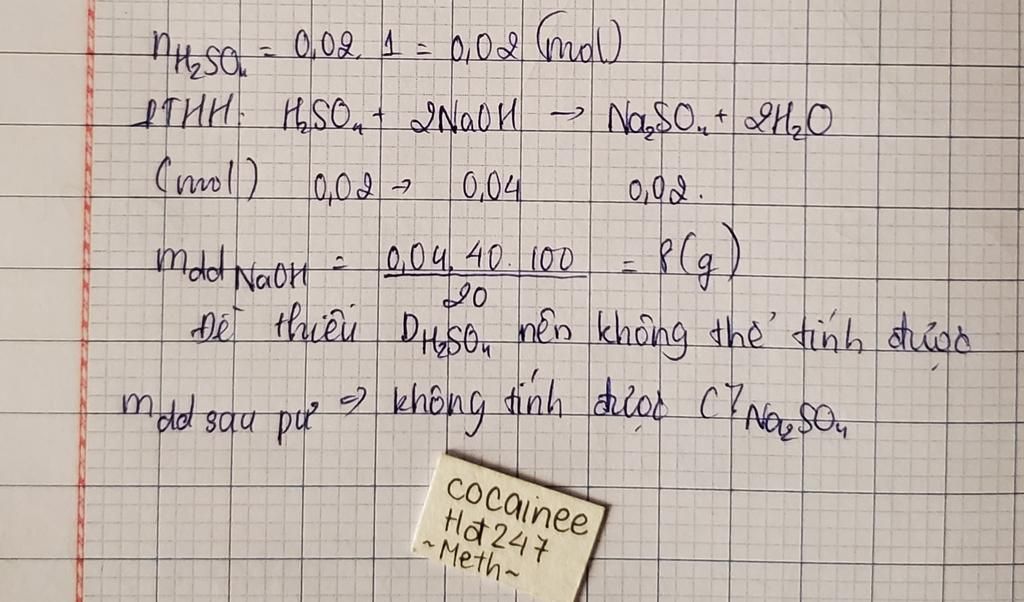 nH₂SO₄ = 0,02. 1 = 0,02 (mol)
PTHH: H₂SO₄ + 2NaOH → Na₂SO₄ + 2H₂O
(mol) 0,02 → 0,04 0,02.
mdd NaOH = 0,04. 40. 100 / 20 = 8(g)
Đề thiếu DH₂SO₄ nên không thể tính được
mdd sau pư ⇒ không tính được C% Na₂SO₄
cocainee
Hot247
~Meth~